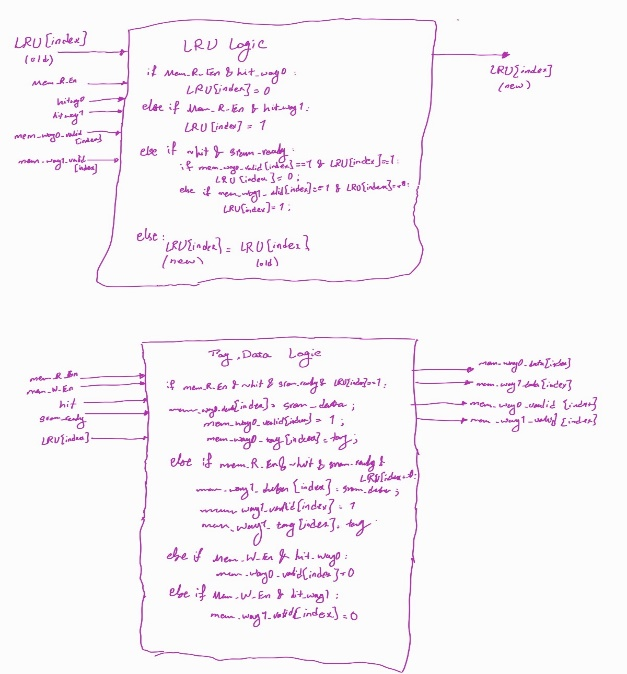 LRU Logic
LRU[index]
(old)
Mem_R_En
hitway0
hitway1
mem_way0_valid
[index]
mem_way1_valid
[index]
if Mem_R_En & hit_way0:
LRU[index] = 0
else if Mem_R_En & hitway1:
LRU[index] = 1
else if ~hit & sram_ready:
if mem_way0_valid[index]==1 & LRU[index]=1:
LRU[index] = 0;
else if mem_way1_valid[index]==1 & LRU[index]==0:
LRU[index]=1;
else:
LRU[index] = LRU[index]
(new) (old)
LRU[index]
(new)
Tag, Data Logic
mem_R_En
mem_W_En
hit
sram_ready
LRU[index]
if mem_R_En & ~hit & sram_ready & LRU[index]==1:
mem_way0_data[index] = sram_data;
mem_way0_valid[index] = 1;
mem_way0_tag[index] = tag;
else if mem_R_En & ~hit & sram_ready &
LRU[index]==0:
mem_way1_data[index] = sram_data;
mem_way1_valid[index] = 1
mem_way1_tag[index] = tag
else if Mem_W_En & hit_way0:
mem_way0_valid[index] = 0
else if Mem_W_En & hit_way1:
mem_way1_valid[index] = 0
mem_way0_data[index]
mem_way1_data[index]
mem_way0_valid [index]
mem_way1_valid [index]